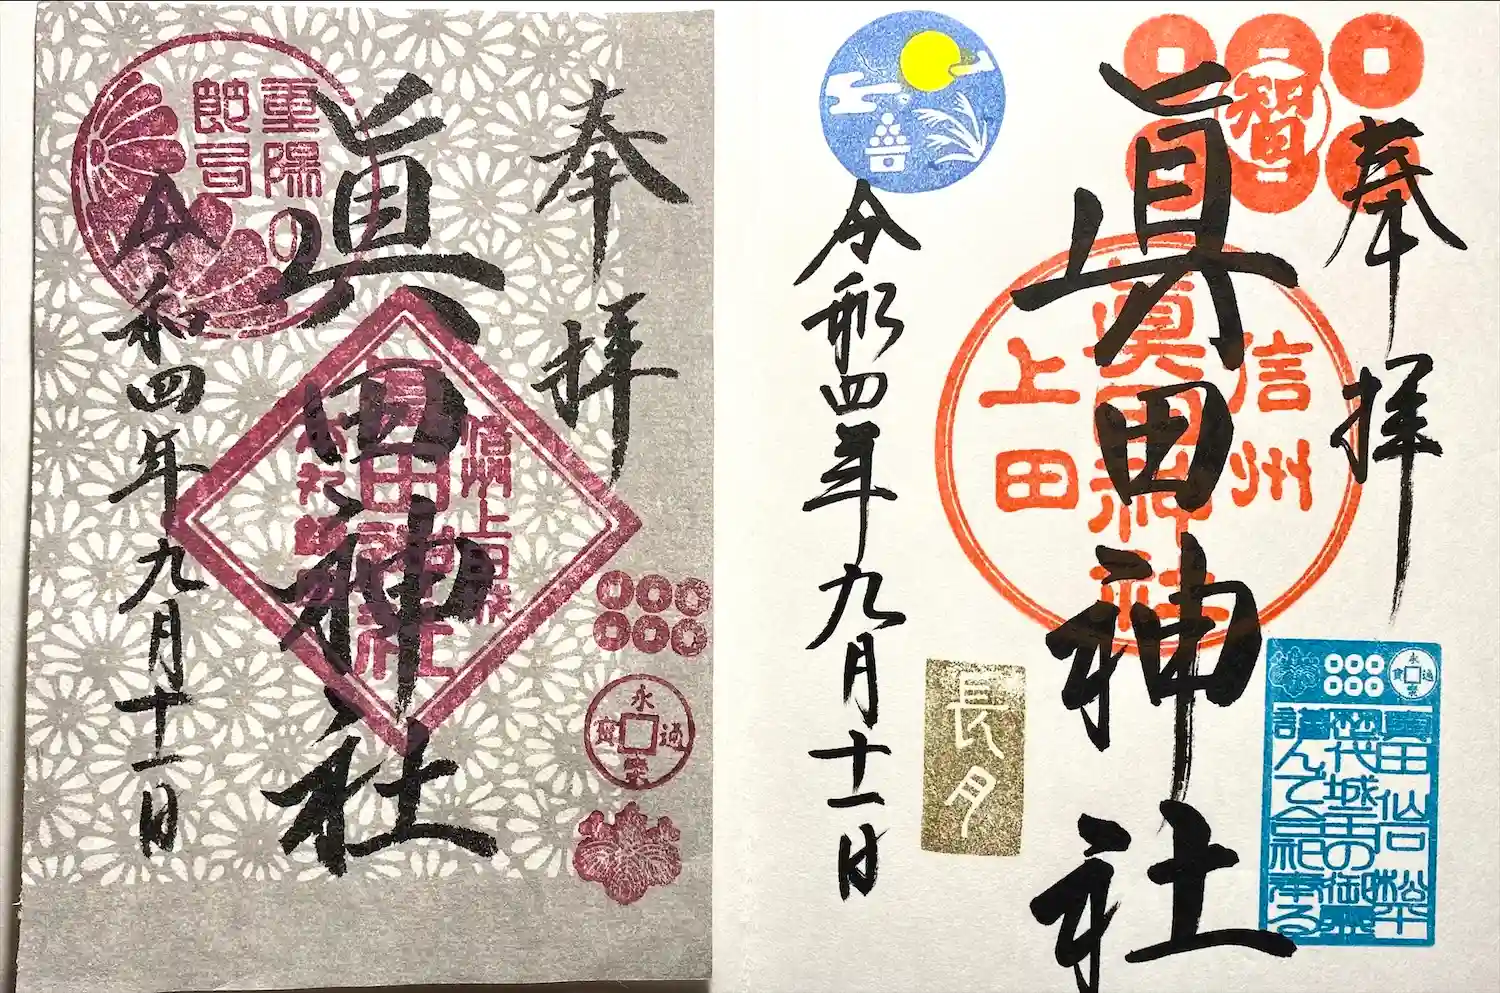 奉拝
眞田神社
令和四年九月十一日
重陽
節句
信州上田城
眞田神社
永通寳
奉拝
眞田神社
令和四年九月十一日
智
信州
眞田神社
上田
長月
眞田 仙石 松平
歴代城主の御霊
謹んで合祀奉る